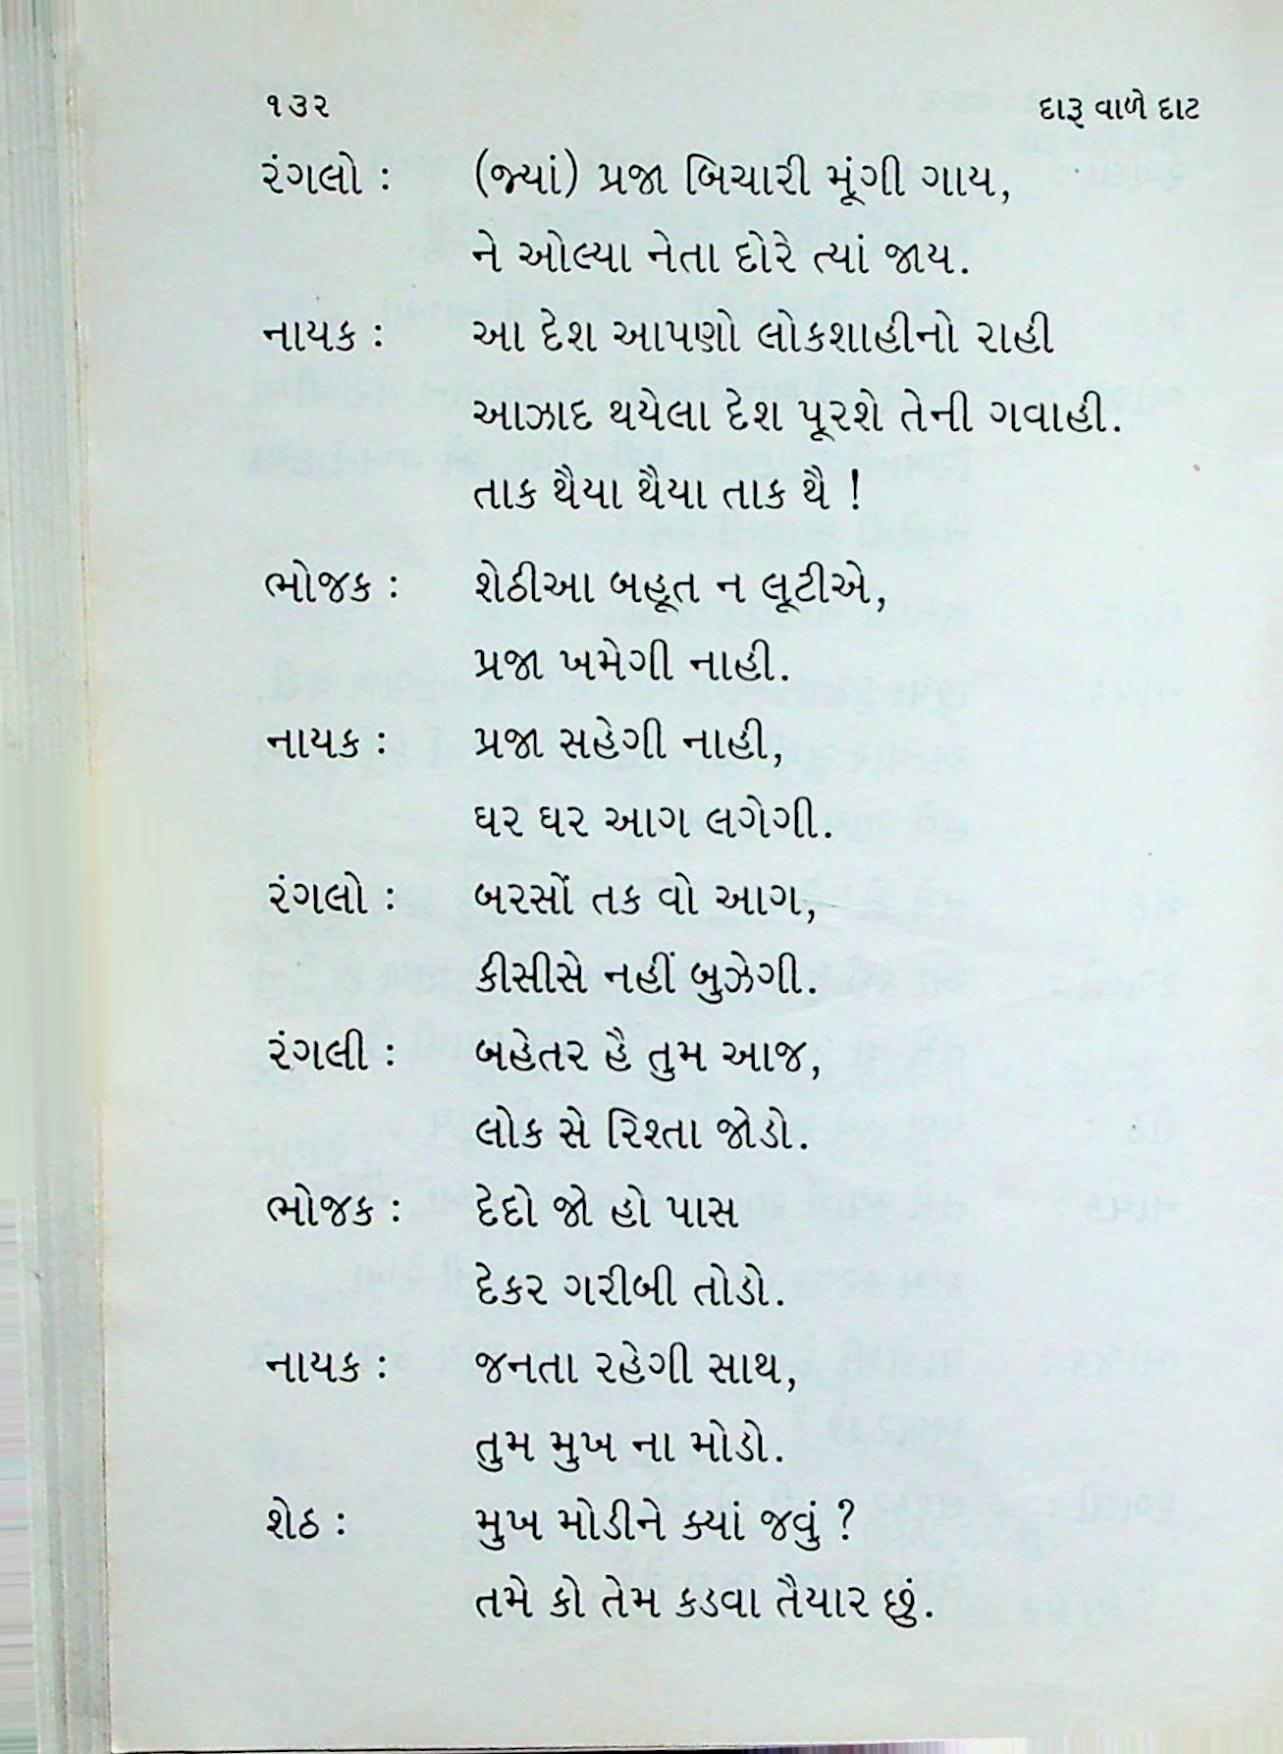 ૧૩૨ દારૂ વાળે દાટ
રંગલો : (જ્યાં) પ્રજા બિચારી મૂંગી ગાય,
ને ઓલ્યા નેતા દોરે ત્યાં જાય.
નાયક : આ દેશ આપણો લોકશાહીનો રાહી
આઝાદ થયેલા દેશ પૂરશે તેની ગવાહી.
તાક થૈયા થૈયા તાક થૈ !
ભોજક : શેઠીઆ બહૂત ન લૂટીએ,
પ્રજા ખમેગી નાહી.
નાયક : પ્રજા સહેગી નાહી,
ઘર ઘર આગ લગેગી.
રંગલો : બરસોં તક વો આગ,
કીસીસે નહીં બુઝેગી.
રંગલી : બહેતર હૈ તુમ આજ,
લોક સે રિશ્તા જોડો.
ભોજક : દેદો જો હો પાસ
દેકર ગરીબી તોડો.
નાયક : જનતા રહેગી સાથ,
તુમ મુખ ના મોડો.
શેઠ : મુખ મોડીને ક્યાં જવું ?
તમે કો તેમ કડવા તૈયાર છું.